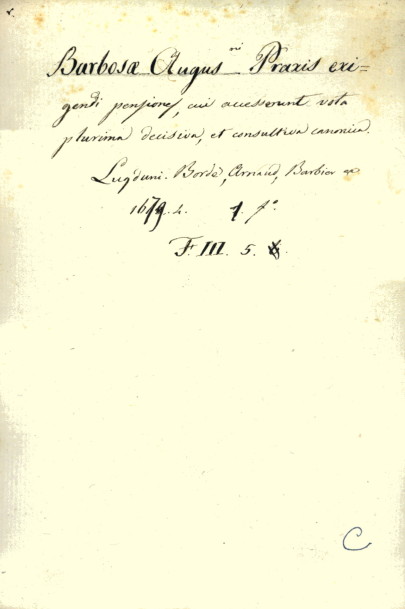 Barbosæ Augus ni Praxis exi=
gendi pensiones, cui accesserunt vota
plurima decisiva, et consultiva canonica.
Lugduni. Borde, Arnaud, Barbier
1679. 4. 1. fo.
F. III. 5.
C